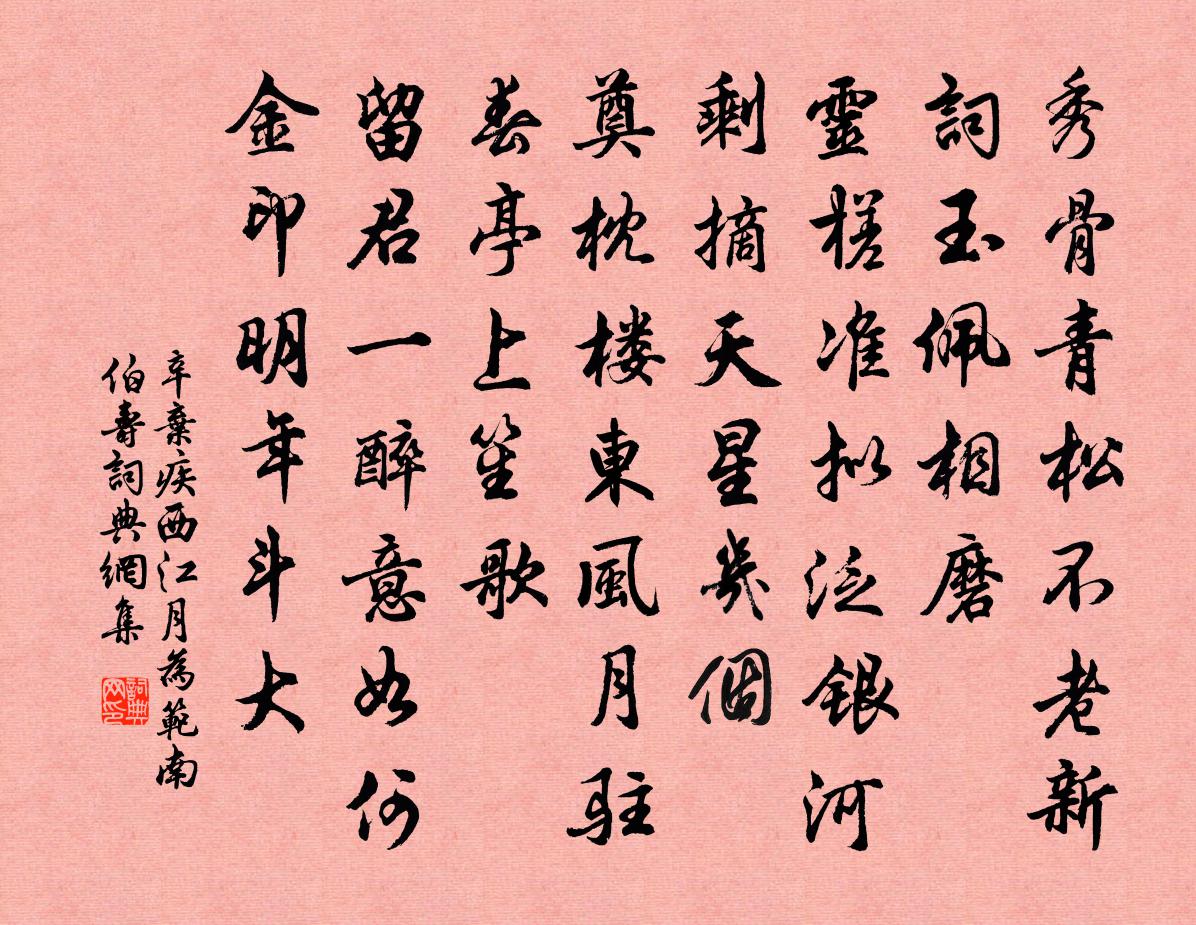 秀骨青松不老新
詞玉佩相磨
靈槎准拟泛銀河
剩摘天星幾個
奠枕楼東風月駐
春亭上笙歌
留君一醉意如何
金印明年斗大
辛棄疾西江月為範南
伯壽詞典網集
詞典网印